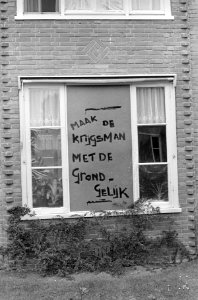 MAAK DE
KRIJGSMAN
MET DE
GROND_
GELIJK